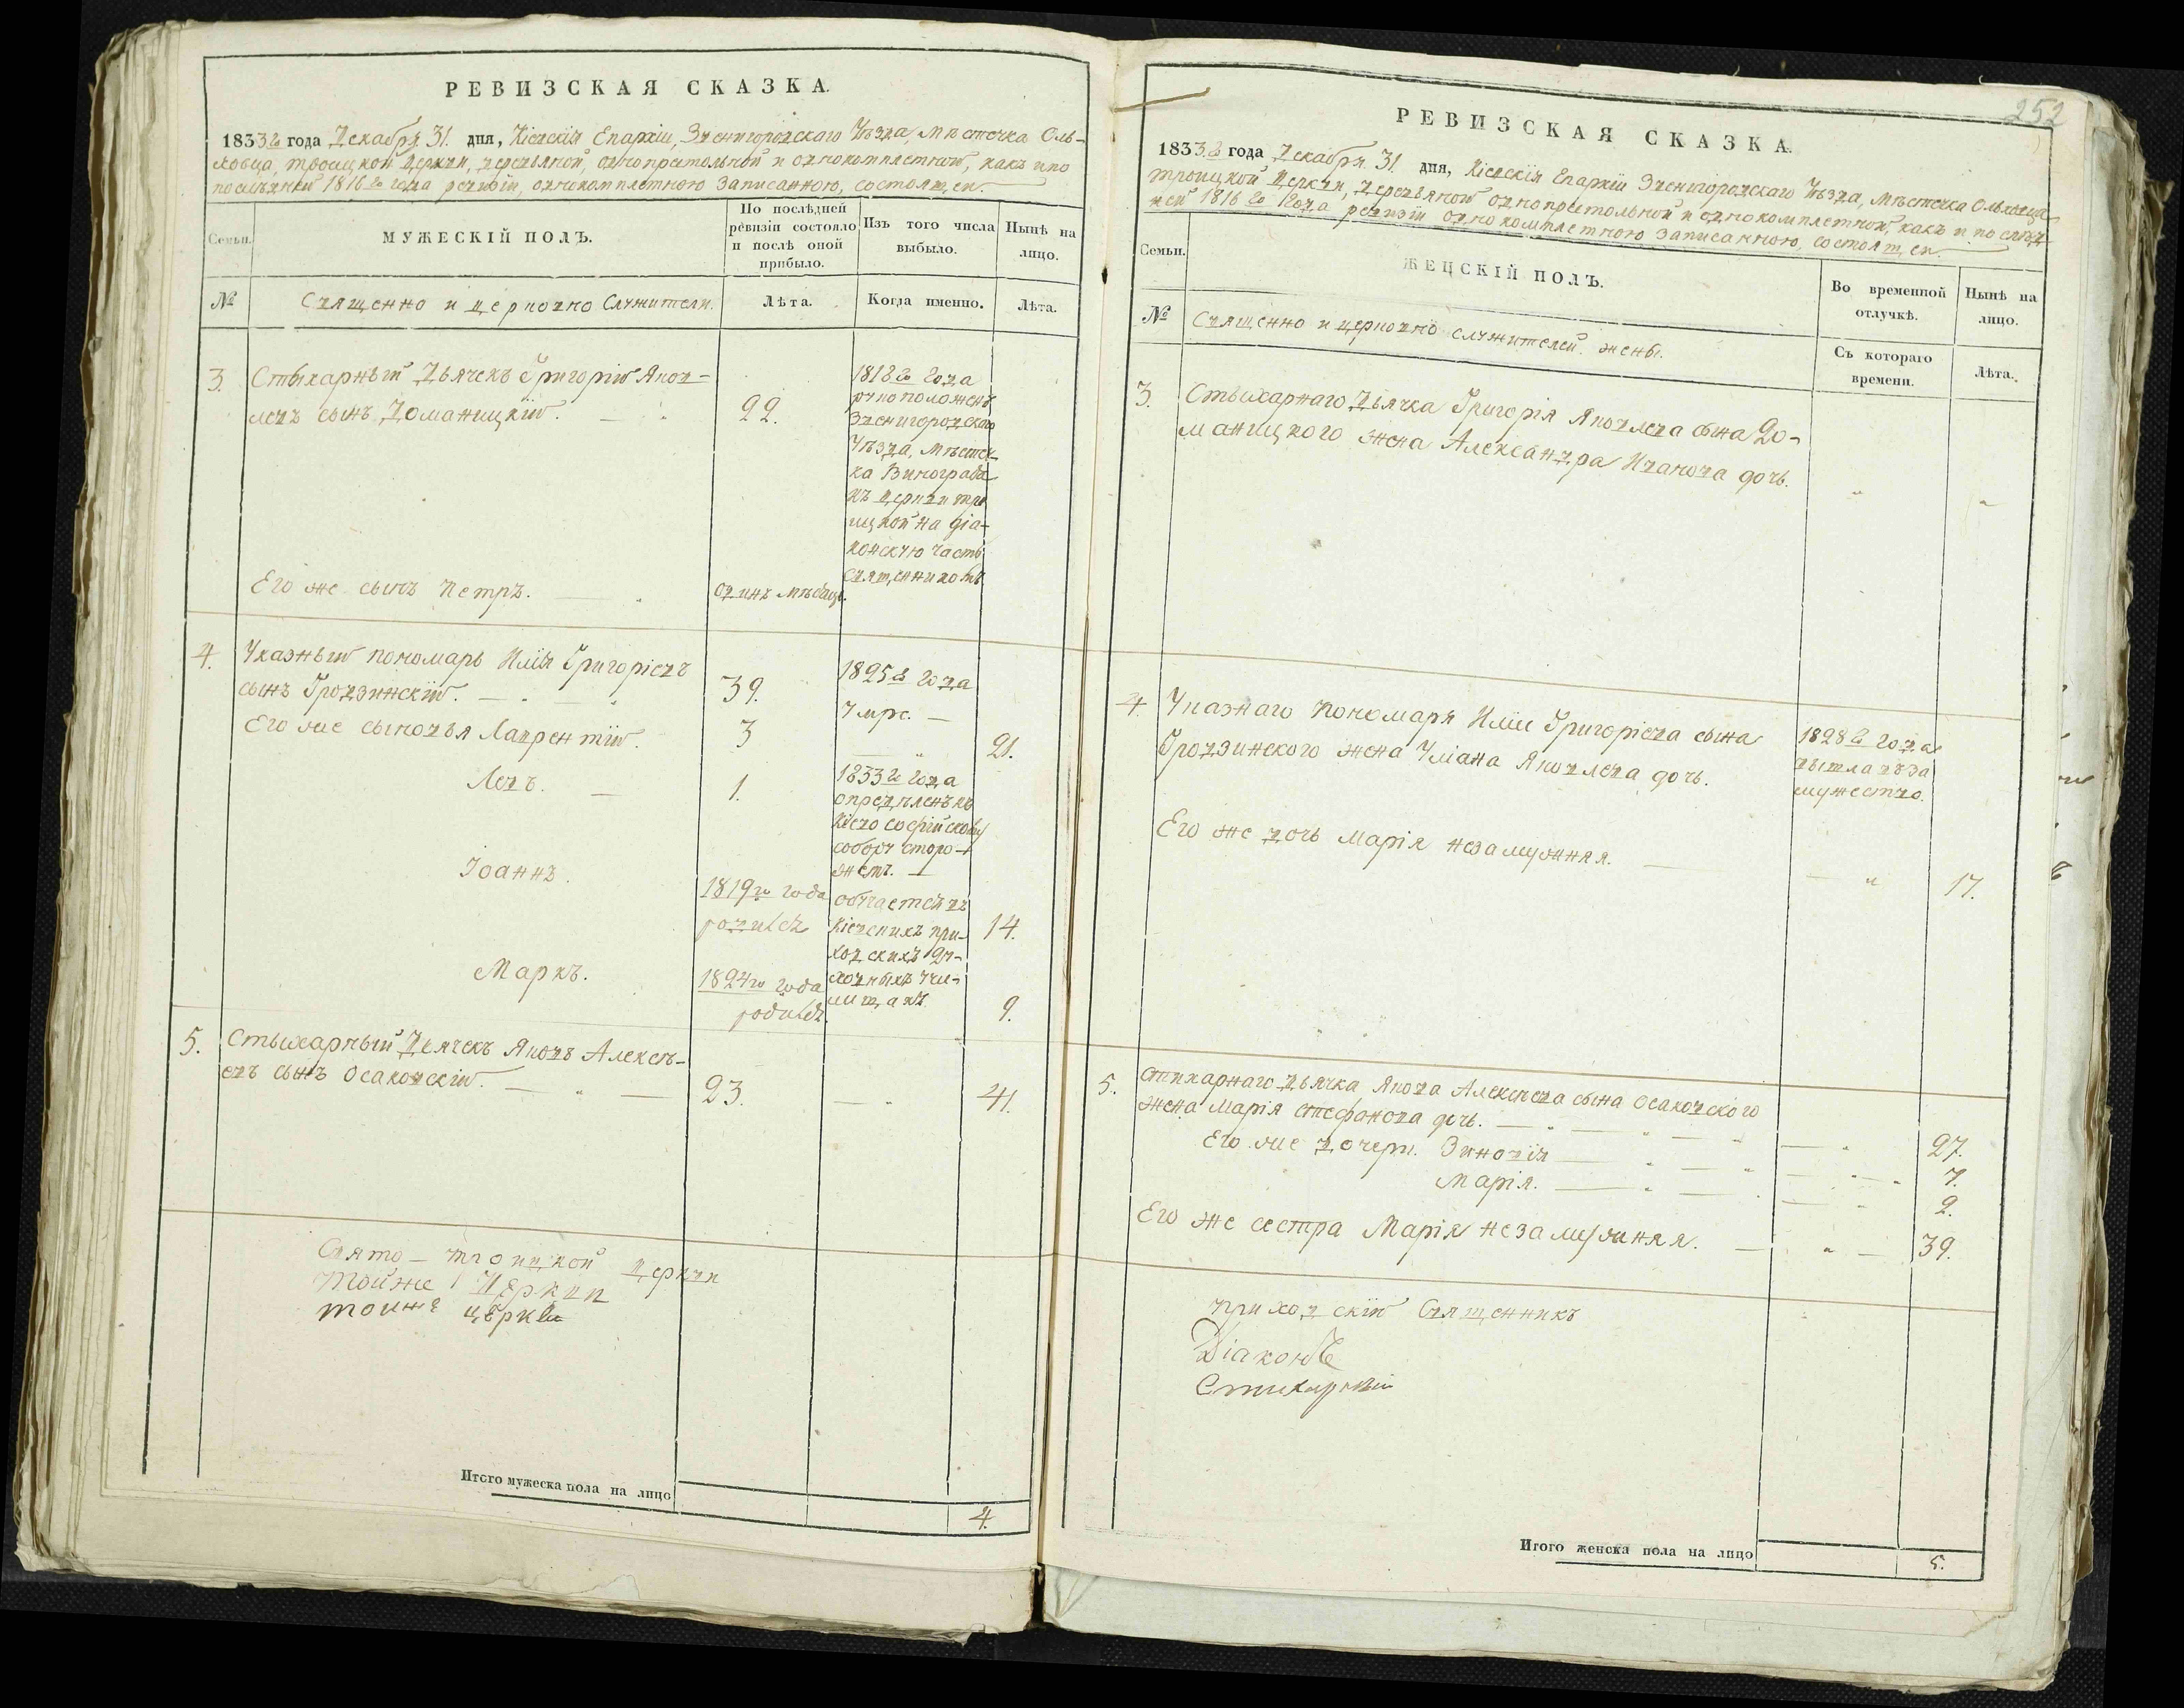 РЕВИЗСКАЯ СКАЗКА.
1833го года Декабря 31. дня, Кіевскія Епархіи, Звенигородскаго Уѣзда, мѣстечка Оль-
ховца, троицкой церкви, деревяной, однопрестольной и однокомплетной, какъ и по
послѣдней 1816го года ревизіи, однокомплетною записанною, состоящеи.
Семьи.
МУЖЕСКІЙ ПОЛЪ.
По послѣдней
ревизіи состояло
и послѣ оной
прибыло.
Изъ того числа
выбыло.
Нынѣ на
лицо.
№
Священно и церковно Служители.
Лѣта.
Когда именно.
Лѣта.
3. Стыхарный Дьячекъ Григорій Яков-
левъ сынъ Доманицкій.
22.
1818го года
рукоположенъ
Звенигородскаго
Уѣзда, мѣстеч-
ка Винограда
къ церкви тро
ицкой на діа-
конскую часть
священникомъ
Его же сынъ Петръ.
одинъ мѣсяцъ.
4. Указный пономарь Илія Григоріевъ
сынъ Гродзинскій.
39.
1825го года
умре.
Его же сыновья Лаврентій.
3
21.
Левъ.
1.
1833го года
опредѣленъ къ
Кіево софійскому
собору сторо-
жемъ.
Іоаннъ.
1819го года
родился
обучается въ
Кіевскихъ при-
ходскихъ ду-
ховныхъ учи-
лищахъ
14.
Маркъ.
1824го года
родился.
9.
5. Стыхарный Дьячекъ Яковъ Алексѣ-
евъ сынъ Осаковскій.
23.
41.
Свято-троицкой церкви
тойже церкви
тойже церкви
Итого мужеска пола на лицо
4.
252
РЕВИЗСКАЯ СКАЗКА.
1833го года Декабря 31. дня, Кіевскія Епархіи Звенигородскаго Уѣзда, мѣстечка Ольховца
троицкой церкви, деревяной однопрестольной и однокомплетной, какъ и по слѣд-
ней 1816го года ревизіи однокомплетною записанною, состоящеи.
Семьи.
ЖЕНСКІЙ ПОЛЪ.
Во временной
отлучкѣ.
Нынѣ на
лицо.
№
Священно и церковно служителей жены.
Съ котораго
времени.
Лѣта.
3. Стыхарнаго дьячка Григорія Яковлева сына До-
маницкого жена Александра Иванова дочь.
4. Указнаго пономаря Иліи Григоріева сына
Гродзинского жена Уліана Яковлева дочь.
1828го года
вышла въ за
мужество.
Его же дочь Марія незамужняя.
17.
5. Стихарнаго дьячка Якова Алексѣева сына Осаковского
жена Марія Стефанова дочь.
27.
Его же дочери. Зиновія
7.
Марія.
2.
Его же сестра Марія незамужняя.
39.
приходскій Священникъ
Діаконъ
Стихарный
Итого женска пола на лицо
5.